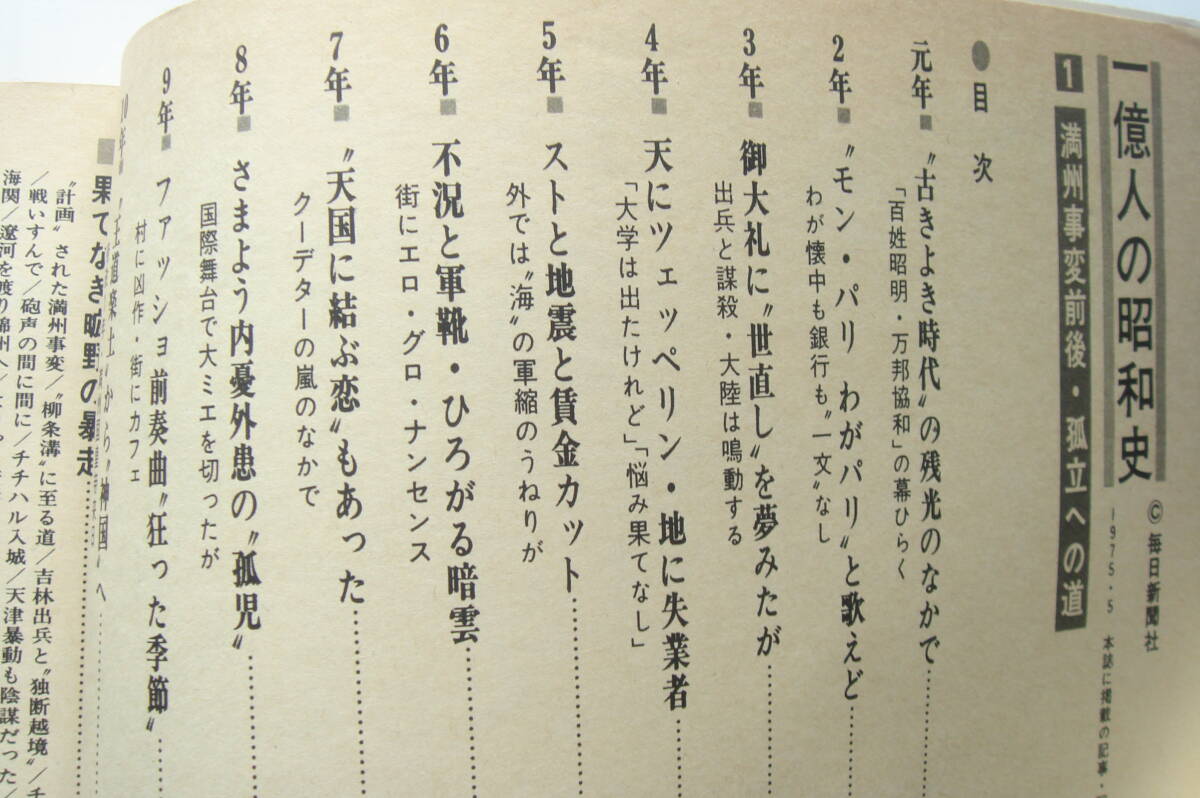 一億人の昭和史
©毎日新聞社
1975・5 本誌に掲載の記事・
1 満州事変前後・孤立への道
●目次
元年■ 〝古きよき時代〟の残光のなかで
「百姓昭明・万邦協和」の幕ひらく
2年■ 〝モン・パリ わがパリ〟と歌えど
わが懐中も銀行も〝一文〟なし
3年■ 御大礼に〝世直し〟を夢みたが
出兵と謀殺・大陸は鳴動する
4年■ 天にツェッペリン・地に失業者
「大学は出たけれど」「悩み果てなし」
5年■ ストと地震と賃金カット
外では〝海〟の軍縮のうねりが
6年■ 不況と軍靴・ひろがる暗雲
街にエロ・グロ・ナンセンス
7年■ 〝天国に結ぶ恋〟もあった
クーデターの嵐のなかで
8年■ さまよう内憂外患の〝孤児〟
国際舞台で大ミエを切ったが
9年■ ファッショ前奏曲〝狂った季節〟
村に凶作・街にカフェ
10年■ 〝王道楽土〟から〝神国〟へ
■果てなき曠野の暴走
〝計画〟された満州事変/〝柳条溝〟に至る道/吉林出兵と〝独断越境〟/チ
/戦いすんで/砲声の間に間に/チチハル入城/天津暴動も陰謀だった/
海関/遼河を渡り錦州へ/